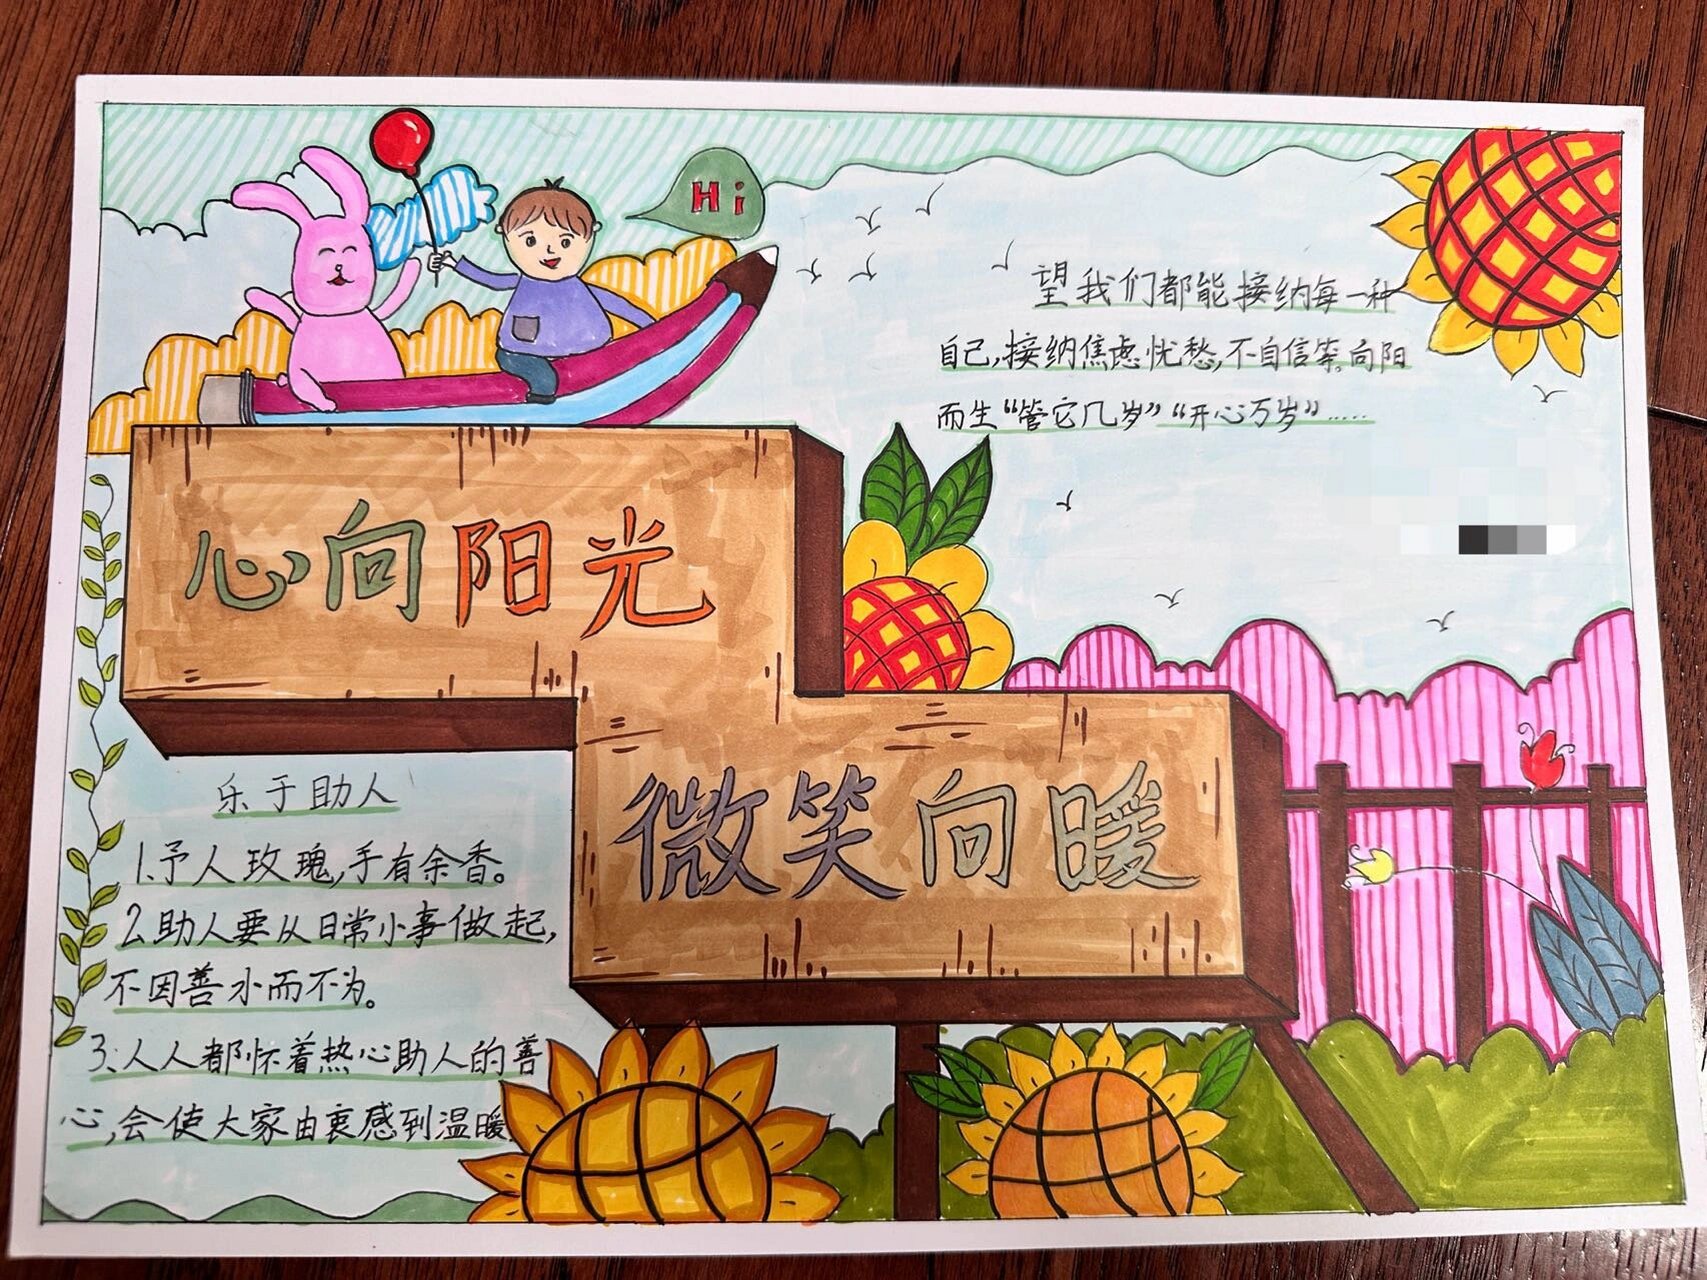 Hi
望我们都能接纳每一种
自己,接纳焦虑忧愁,不自信等。向阳
而生“管它几岁”“开心万岁”……
心向阳光
微笑向暖
乐于助人
1.予人玫瑰,手有余香。
2.助人要从日常小事做起,
不因善小而不为。
3、人人都怀着热心助人的善
心,会使大家由衷感到温暖。